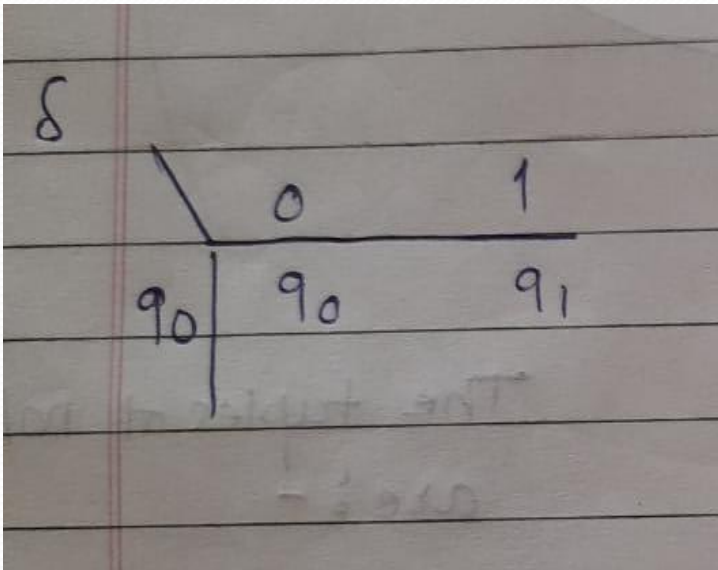 δ
0 1
q0 q0 q1